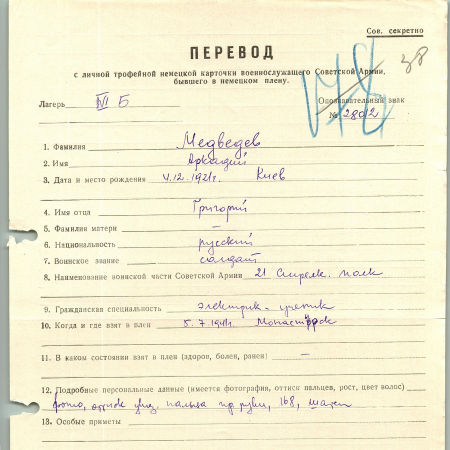 Сов. секретно
38
ПЕРЕВОД
с личной трофейной немецкой карточки военнослужащего Советской Армии,
бывшего в немецком плену.
Лагерь VI Б
Опознавательный знак
№ 28012
1. Фамилия Медведев
2. Имя Аркадий
3. Дата и место рождения 4.12.1921г. Киев
4. Имя отца Григорий
5. Фамилия матери —
6. Национальность русский
7. Воинское звание солдат
8. Наименование воинской части Советской Армии 21 Стрелк. полк
9. Гражданская специальность электрик-ученик
10. Когда и где взят в плен 5.7.1941г.
11. В каком состоянии взят в плен (здоров, болен, ранен) —
12. Подробные персональные данные (имеется фотография, оттиск пальцев, рост, цвет волос)
фото, оттиск указ. пальца пр. руки, 168, шатен
13. Особые приметы